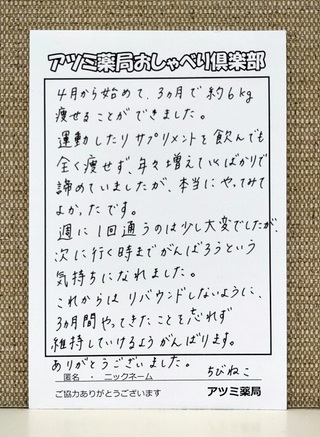 アツミ薬局おしゃべり倶楽部
4月から始めて、3ヵ月で約6kg
痩せることができました。
運動したりサプリメントを飲んでも
全く痩せず、年々増えていくばかりで
諦めていましたが、本当にやってみて
よかったです。
週に1回通うのは少し大変でしたが、
次に行く時までがんばろうという
気持ちになれました。
これからはリバウンドしないように、
3ヵ月間やってきたことを忘れず
維持していけるようがんばります。
ありがとうございました。
匿名 ・ ニックネーム ちびねこ
ご協力ありがとうございます アツミ薬局